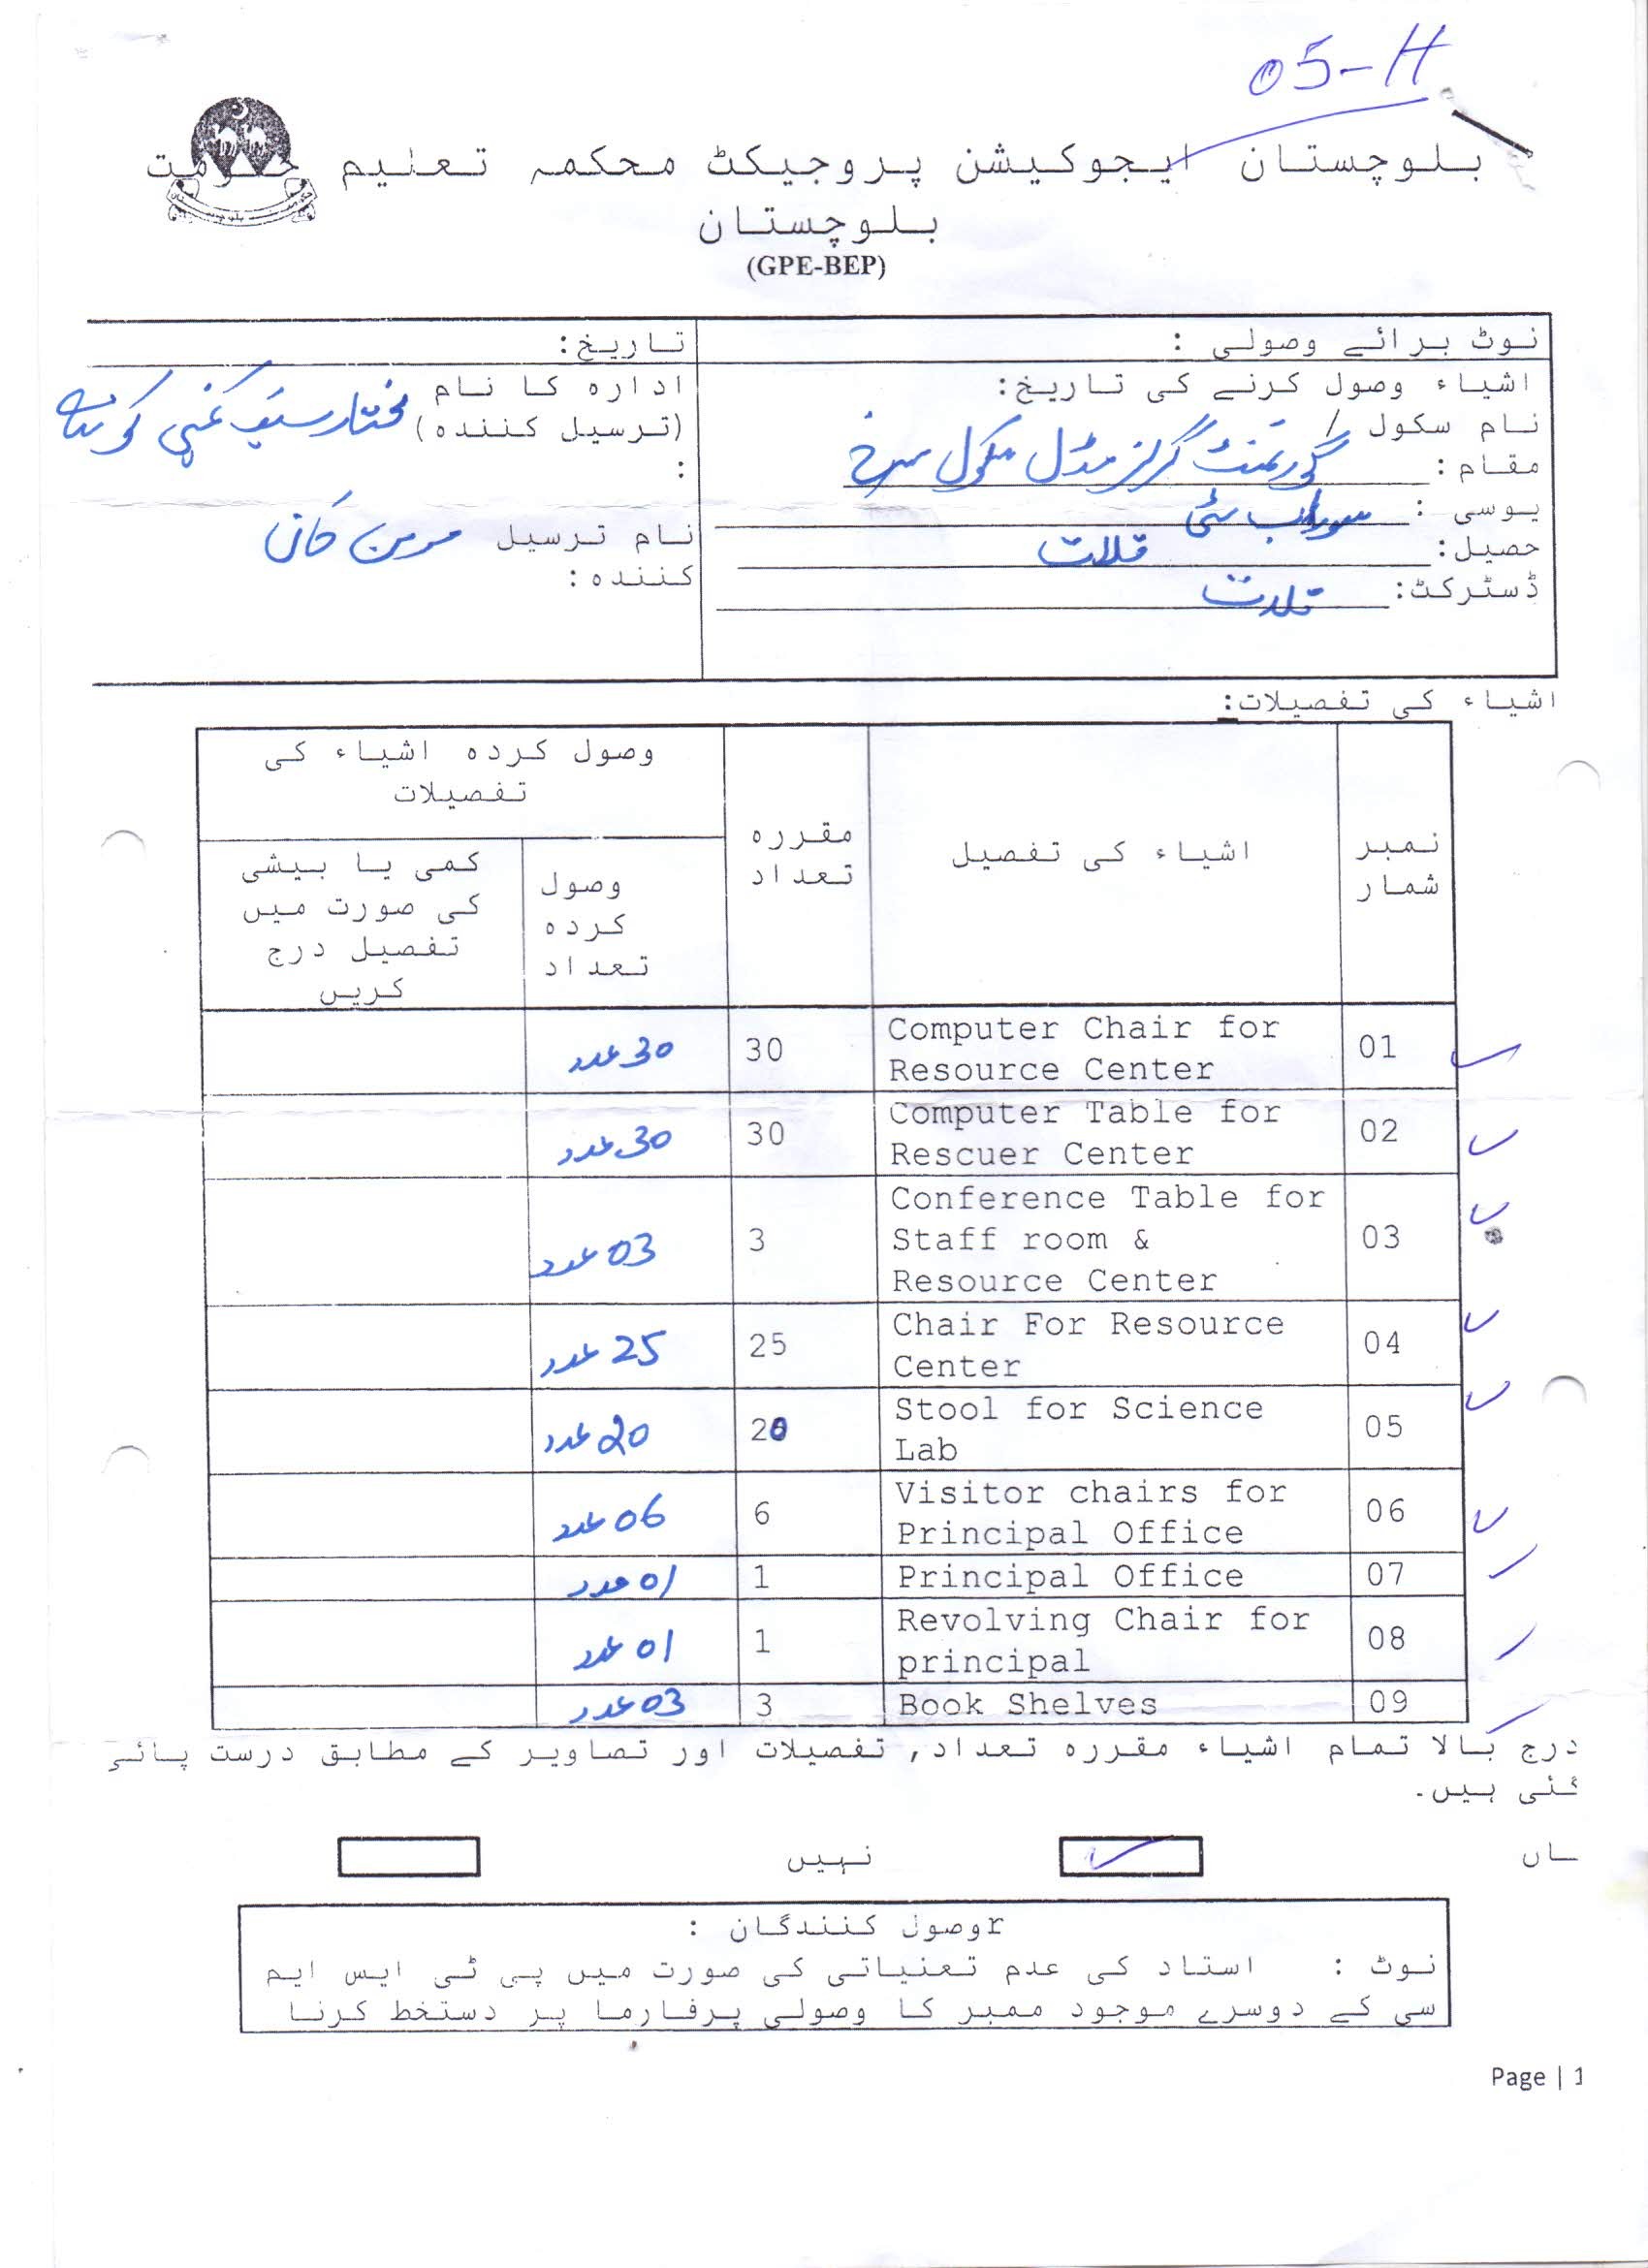 05-H
بلوچستان ایجوکیشن پروجیکٹ محکمہ تعلیم حکومت
بلوچستان
(GPE-BEP)
نوٹ برائے وصولی :
تاریخ:
اشیاء وصول کرنے کی تاریخ:
نام سکول /
مقام: گورنمنٹ گرلز مڈل سکول سرخ
یوسی : سوراب سٹی
حصیل: قلات
ڈسٹرکٹ: قلات
ادارہ کا نام
(ترسیل کنندہ) مختار
:
نام ترسیل خان
کنندہ:
اشیاء کی تفصیلات:
نمبر شمار
اشیاء کی تفصیل
مقررہ تعداد
وصول کردہ اشیاء کی تفصیلات
وصول کردہ تعداد
کمی یا بیشی کی صورت میں تفصیل درج کریں
01 Computer Chair for Resource Center 30 30 عدد
02 Computer Table for Rescuer Center 30 30 عدد
03 Conference Table for Staff room & Resource Center 3 03 عدد
04 Chair For Resource Center 25 25 عدد
05 Stool for Science Lab 20 20 عدد
06 Visitor chairs for Principal Office 6 06 عدد
07 Principal Office 1 01 عدد
08 Revolving Chair for principal 1 01 عدد
09 Book Shelves 3 03 عدد
درج بالا تمام اشیاء مقررہ تعداد, تفصیلات اور تصاویر کے مطابق درست پائی
گئی ہیں۔
ہاں ✓ نہیں
rوصول کنندگان :
نوٹ : استاد کی عدم تعنیاتی کی صورت میں پی ٹی ایس ایم
سی کے دوسرے موجود ممبر کا وصولی پرفارما پر دستخط کرنا
Page | 1